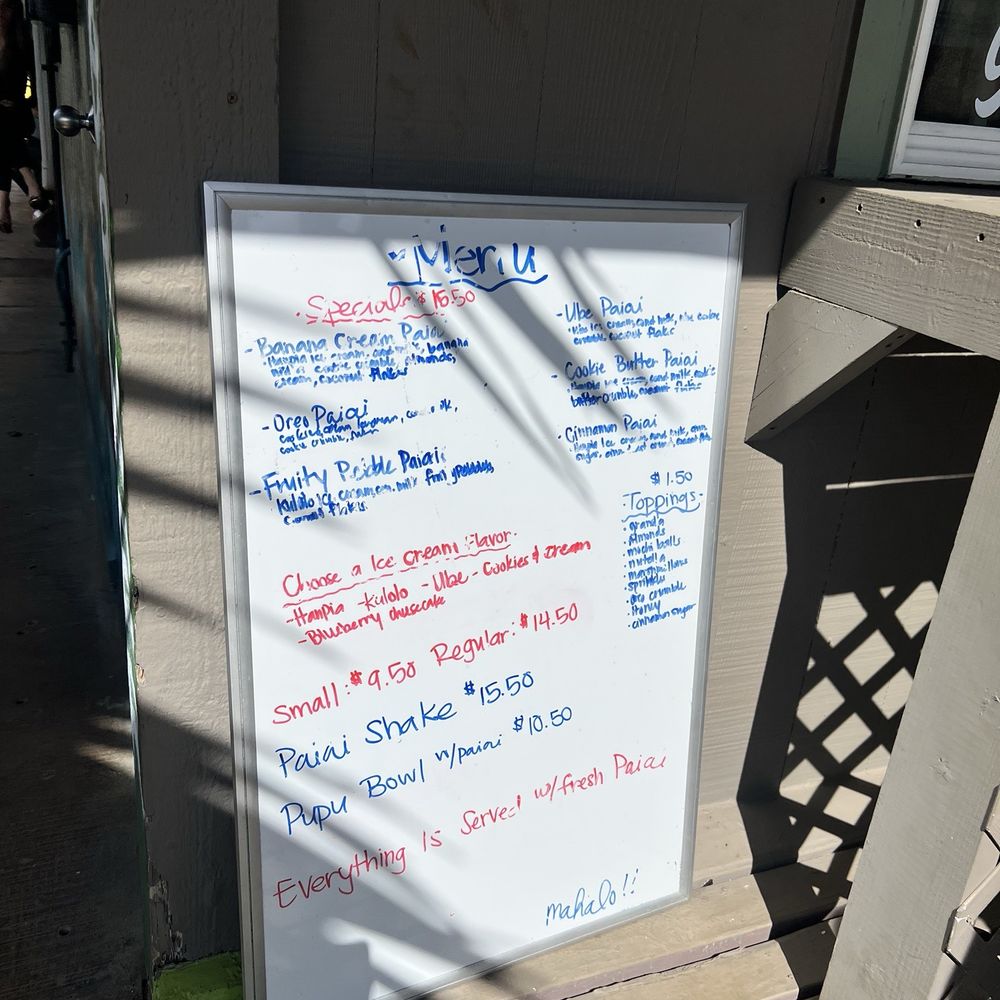 Menu
Specials $15.50
- Banana Cream Paiai
Haupia ice cream, cond milk, banana
cookie crumble, almonds,
cream, coconut flakes
- Oreo Paiai
cookie crumble,
- Fruity Pebble Paiai
Kulolo ice cream, milk fruity pebbles,
flakes
- Ube Paiai
ice cream, cond milk, cookie
crumble, coconut flakes
- Cookie Butter Paiai
ice cream, cond milk, cookie
butter crumble, coconut flakes
- Cinnamon Paiai
ice cream, cond milk,
sugar,
$1.50
Toppings
granola
Almonds
mochi balls
nutella
marshmallows
sprinkles
oreo crumble
Honey
cinnamon sugar
Choose a Ice Cream Flavor
- Haupia - Kulolo - Ube - Cookies & Cream
- Blueberry cheesecake
Small: $9.50 Regular: $14.50
Paiai Shake $15.50
Pupu Bowl w/paiai $10.50
Everything is Served w/fresh Paiai
mahalo!!